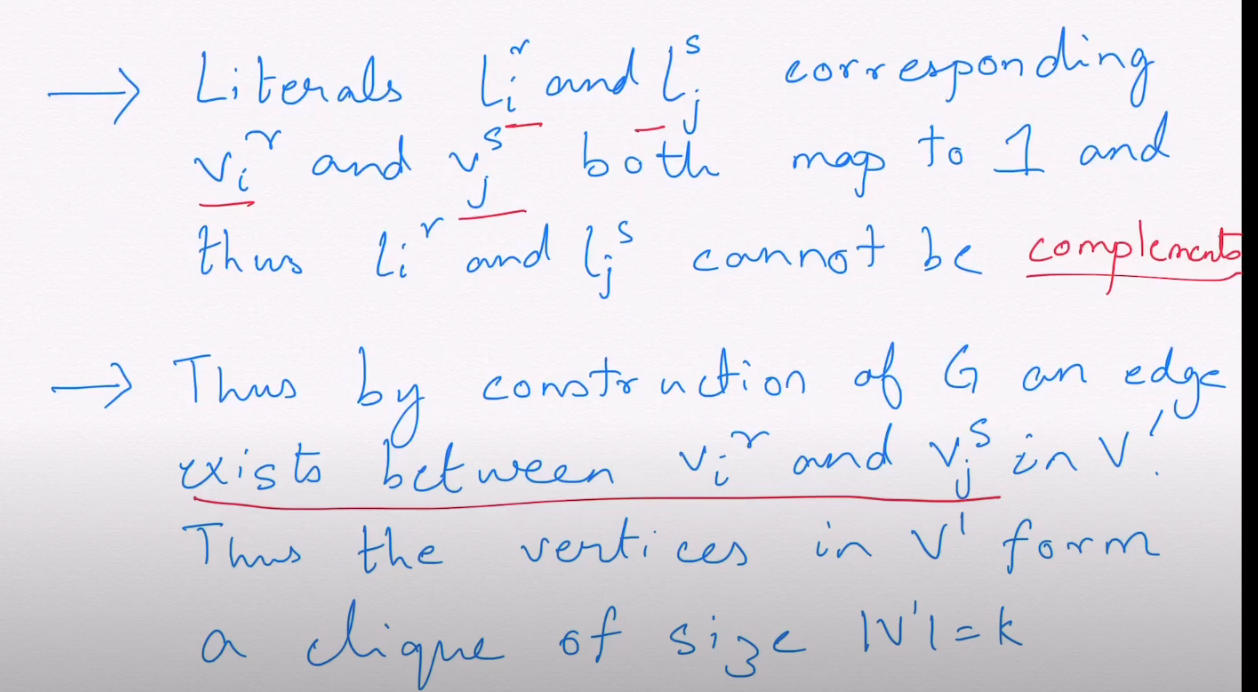 → Literals lᵢʳ and lⱼˢ corresponding
vᵢʳ and vⱼˢ both map to 1 and
thus lᵢʳ and lⱼˢ cannot be complements
→ Thus by construction of G an edge
exists between vᵢʳ and vⱼˢ in V'.
Thus the vertices in V' form
a clique of size |V'|=k